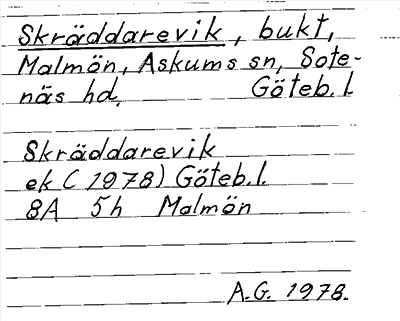 Skräddarevik, bukt,
Malmön, Askums sn, Sote-
näs hd, Göteb. l.
Skräddarevik
ek ( 1978) Göteb. l.
8A 5h Malmön
A.G. 1978.